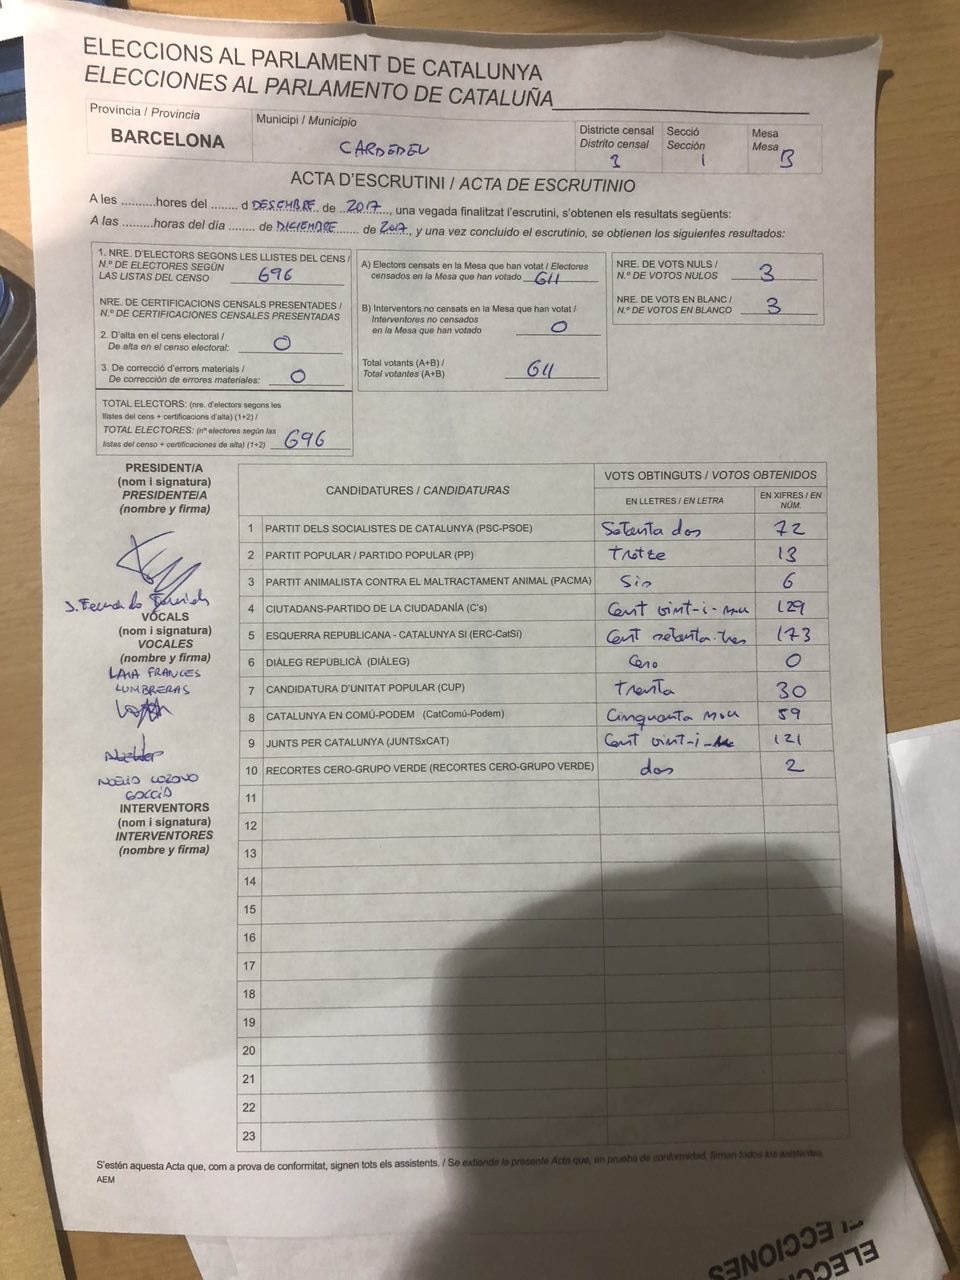 ELECCIONS AL PARLAMENT DE CATALUNYA
ELECCIONES AL PARLAMENTO DE CATALUÑA
Província / Provincia
BARCELONA
Municipi / Municipio
CARDEDEU
Districte censal
Distrito censal
1
Secció
Sección
1
Mesa
Mesa
B
ACTA D'ESCRUTINI / ACTA DE ESCRUTINIO
A les ..........hores del ........ d DESEMBRE de ..2017.., una vegada finalitzat l'escrutini, s'obtenen els resultats següents:
A las ..........horas del día ........ de DICIEMBRE...... de 2017, y una vez concluido el escrutinio, se obtienen los siguientes resultados:
1. NRE. D'ELECTORS SEGONS LES LLISTES DEL CENS /
N.º DE ELECTORES SEGÚN
LAS LISTAS DEL CENSO 696
NRE. DE CERTIFICACIONS CENSALS PRESENTADES /
N.º DE CERTIFICACIONES CENSALES PRESENTADAS
2. D'alta en el cens electoral /
De alta en el censo electoral: 0
3. De correcció d'errors materials /
De corrección de errores materiales: 0
TOTAL ELECTORS: (nre. d'electors segons les
llistes del cens + certificacions d'alta) (1+2) /
TOTAL ELECTORES: (nº electores según las
listas del censo + certificaciones de alta) (1+2) 696
A) Electors censats en la Mesa que han votat / Electores
censados en la Mesa que han votado 611
B) Interventors no censats en la Mesa que han votat /
Interventores no censados
en la Mesa que han votado 0
Total votants (A+B) /
Total votantes (A+B) 611
NRE. DE VOTS NULS /
N.º DE VOTOS NULOS 3
NRE. DE VOTS EN BLANC /
N.º DE VOTOS EN BLANCO 3
PRESIDENT/A
(nom i signatura)
PRESIDENTE/A
(nombre y firma)
VOCALS
(nom i signatura)
VOCALES
(nombre y firma)
LAIA FRANCES
LUMBRERAS
INTERVENTORS
(nom i signatura)
INTERVENTORES
(nombre y firma)
CANDIDATURES / CANDIDATURAS
VOTS OBTINGUTS / VOTOS OBTENIDOS
EN LLETRES / EN LETRA
EN XIFRES / EN
NÚM.
1 PARTIT DELS SOCIALISTES DE CATALUNYA (PSC-PSOE) Setenta dos 72
2 PARTIT POPULAR / PARTIDO POPULAR (PP) tretze 13
3 PARTIT ANIMALISTA CONTRA EL MALTRACTAMENT ANIMAL (PACMA) Sis 6
4 CIUTADANS-PARTIDO DE LA CIUDADANÍA (C's) Cent vint-i-nou 129
5 ESQUERRA REPUBLICANA - CATALUNYA SI (ERC-CatSí) Cent setenta-tres 173
6 DIÀLEG REPUBLICÀ (DIÀLEG) Cero 0
7 CANDIDATURA D'UNITAT POPULAR (CUP) trenta 30
8 CATALUNYA EN COMÚ-PODEM (CatComú-Podem) Cinquanta nou 59
9 JUNTS PER CATALUNYA (JUNTSxCAT) Cent vint-i- 121
10 RECORTES CERO-GRUPO VERDE (RECORTES CERO-GRUPO VERDE) dos 2
11
12
13
14
15
16
17
18
19
20
21
22
23
S'estén aquesta Acta que, com a prova de conformitat, signen tots els assistents. / Se extiende la presente Acta que, en prueba de conformidad, firman todos los asistentes
AEM
ELECCIONES